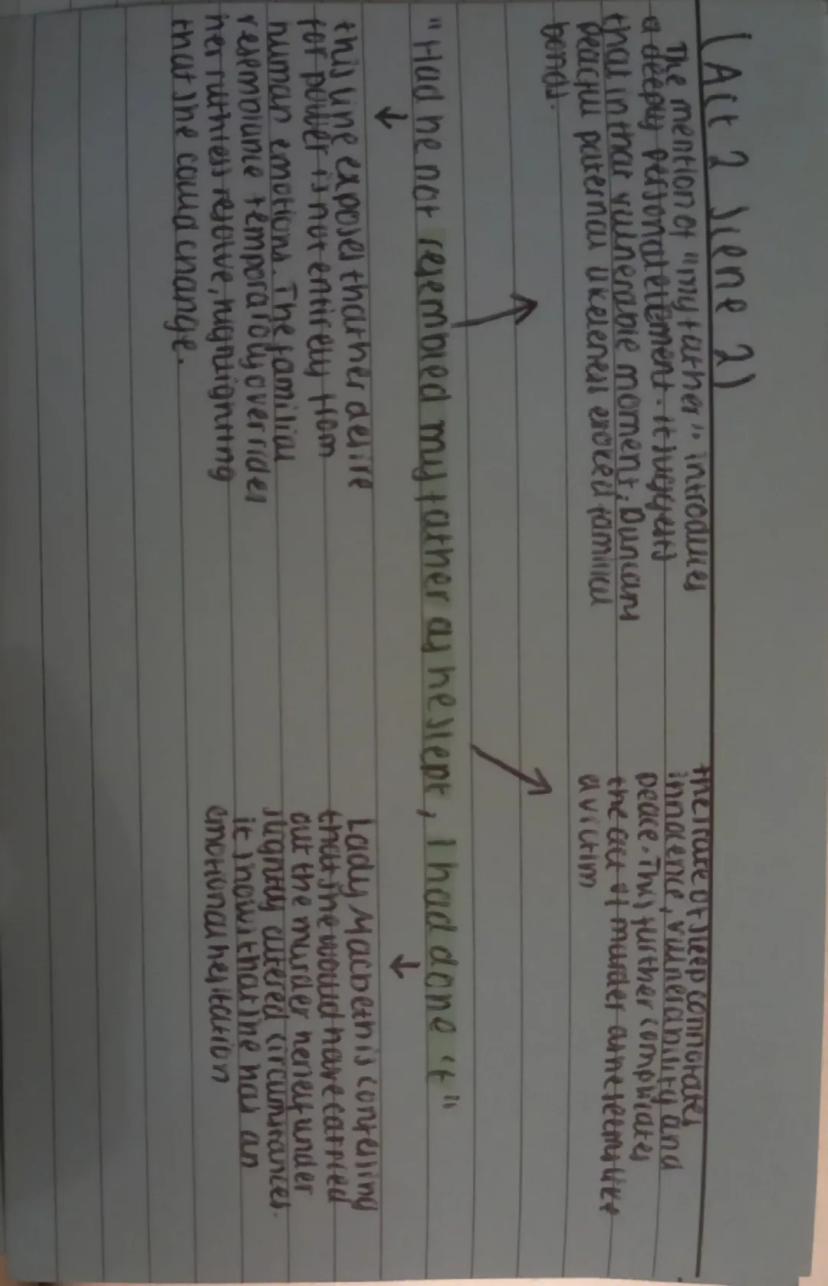 (Act 2 Scene 2)
The mention of "my father" introduces
a deeply personal element. it suggests
that in that vulnerable moment, Duncans
peaceful paternal likeness evoked familial
bonds.
the state of sleep connotates
innocence, vulnerability and
peace. This further complicates
the act of murder as he seems like
a victim
"Had he not resembled my father as he slept, I had done 't"
this line exposes that her desire
for power is not entirely from
human emotions. The familial
resemblance temporarily overrides
her ruthless resolve, highlighting
that she could change.
Lady Macbeth is confessing
that she would have carried
out the murder herself under
slightly altered circumstances.
it shows that she has an
emotional hesitation